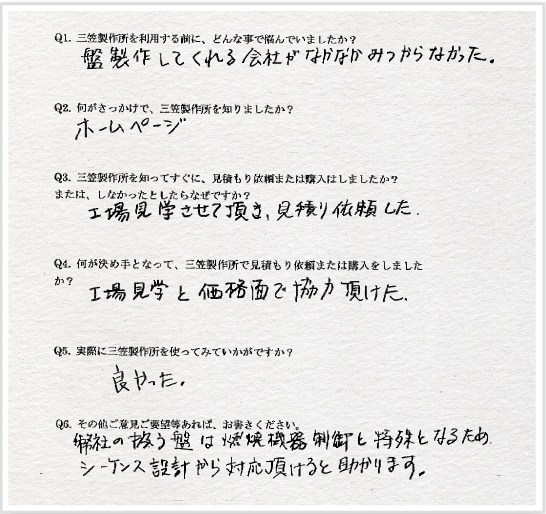 Q1. 三笠製作所を利用する前に、どんな事で悩んでいましたか？
盤製作してくれる会社がなかなかみつからなかった。
Q2. 何がきっかけで、三笠製作所を知りましたか？
ホームページ
Q3. 三笠製作所を知ってすぐに、見積もり依頼または購入はしましたか？
または、しなかったとしたらなぜですか？
工場見学させて頂き、見積り依頼した.
Q4. 何が決め手となって、三笠製作所で見積もり依頼または購入をしました
か？
工場見学と価格面で協力頂けた.
Q5. 実際に三笠製作所を使ってみていかがですか？
良かった.
Q6. その他ご意見ご要望等あれば、お書きください。
弊社の扱う盤は燃焼機器制御と特殊となるため
シーケンス設計から対応頂けると助かります。